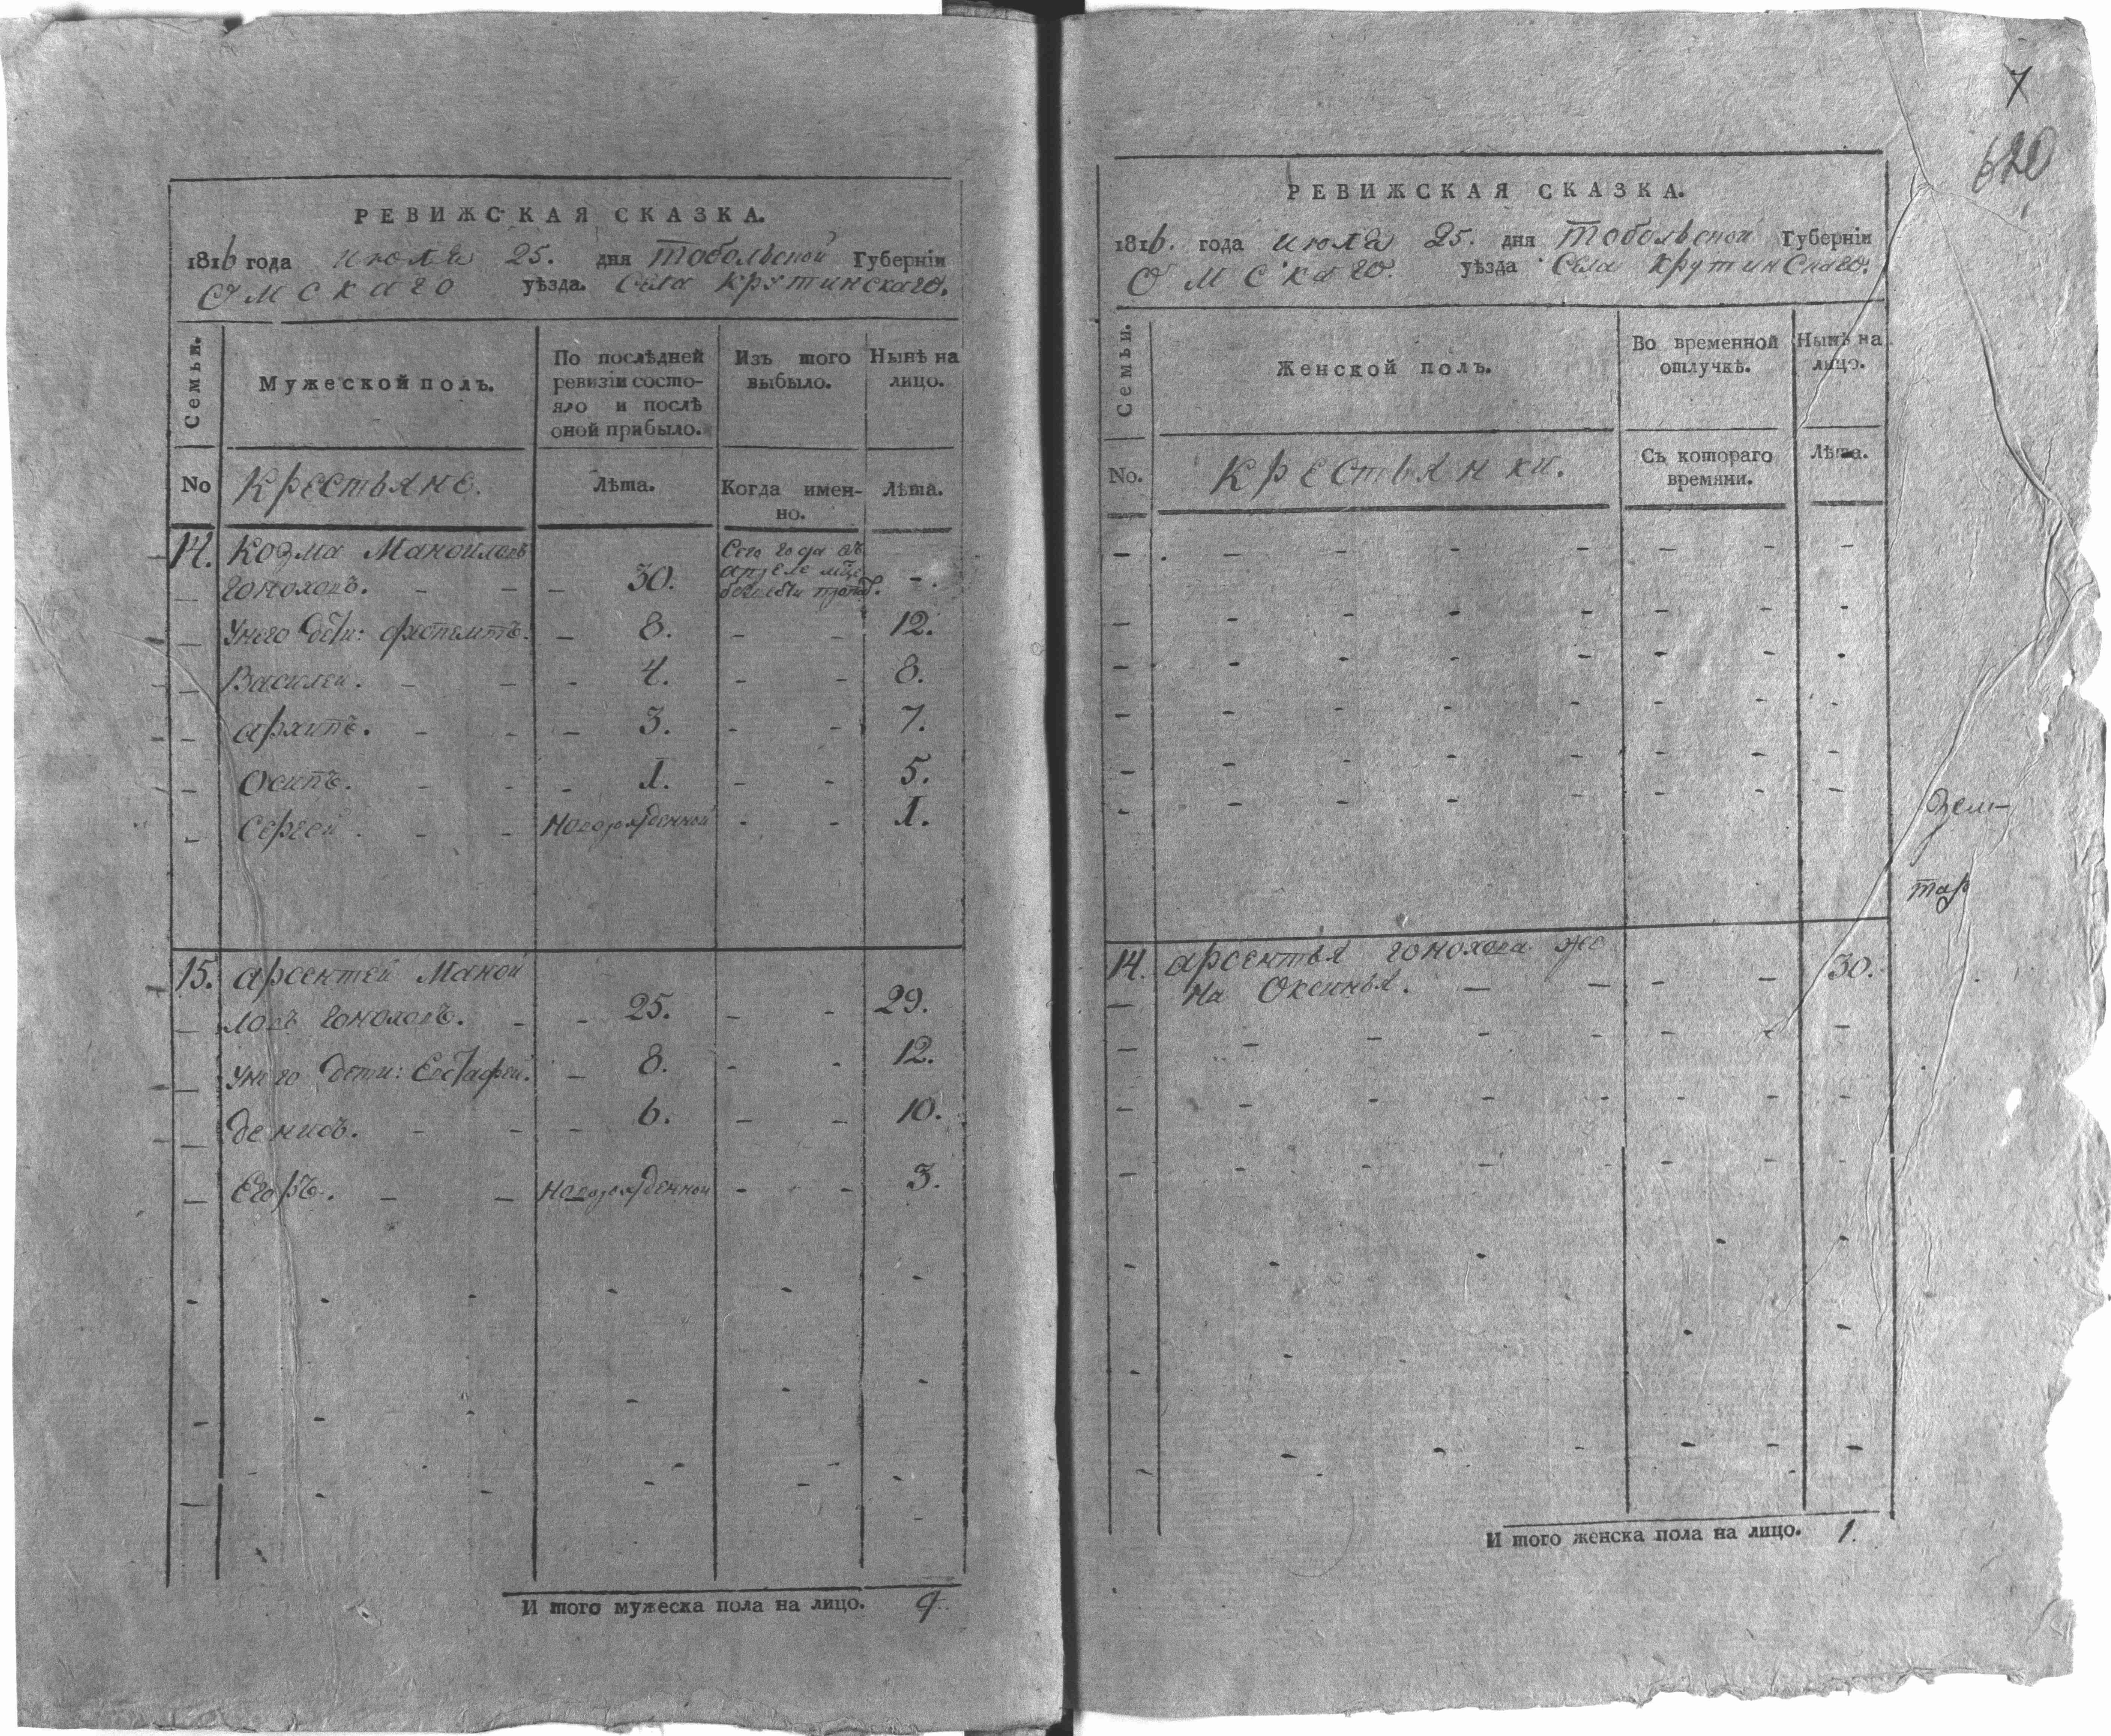 РЕВИЖСКАЯ СКАЗКА.
1816 года июля 25. дня Тобольской Губерніи
Омскаго уѣзда. Села Крутинскаго.
Семьи.
Мужеской полъ.
По послѣдней ревизіи состо-
яло и послѣ
оной прибыло.
Изъ того
выбыло.
Нынѣ на
лицо.
No
Крестьяне.
Лѣта.
Когда имен-
но.
Лѣта.
14. Козма Маноиловъ
Гоноховъ. - - - 30. Сего года въ апреле мце -.
У него дѣти: - 8. - - 12.
Василей. - - - 4. - - 8.
Архипъ. - - - 3. - - 7.
Осипъ. - - - 1. - - 5.
Сергей. - - Новорожденной - - 1.
15. Арсентей Маной
ловъ Гоноховъ. - - 25. - - 29.
У него дети: Евстафей. - 8. - - 12.
Денисъ. - - - 6. - - 10.
Егоръ. - - Новорожденной - - 3.
И того мужеска пола на лицо. 9.
7
620
РЕВИЖСКАЯ СКАЗКА.
1816. года июля 25. дня Тобольской Губерніи
Омскаго. уѣзда Села Крутинскаго.
Семьи.
Женской полъ.
Во временной
отлучкѣ.
Нынѣ на
лицо.
No.
Крестьянки.
Съ котораго
времяни.
Лѣта.
14. Арсентья Гонохова же
на Оксинья. - - - - 30.
тар
И того женска пола на лицо. 1.